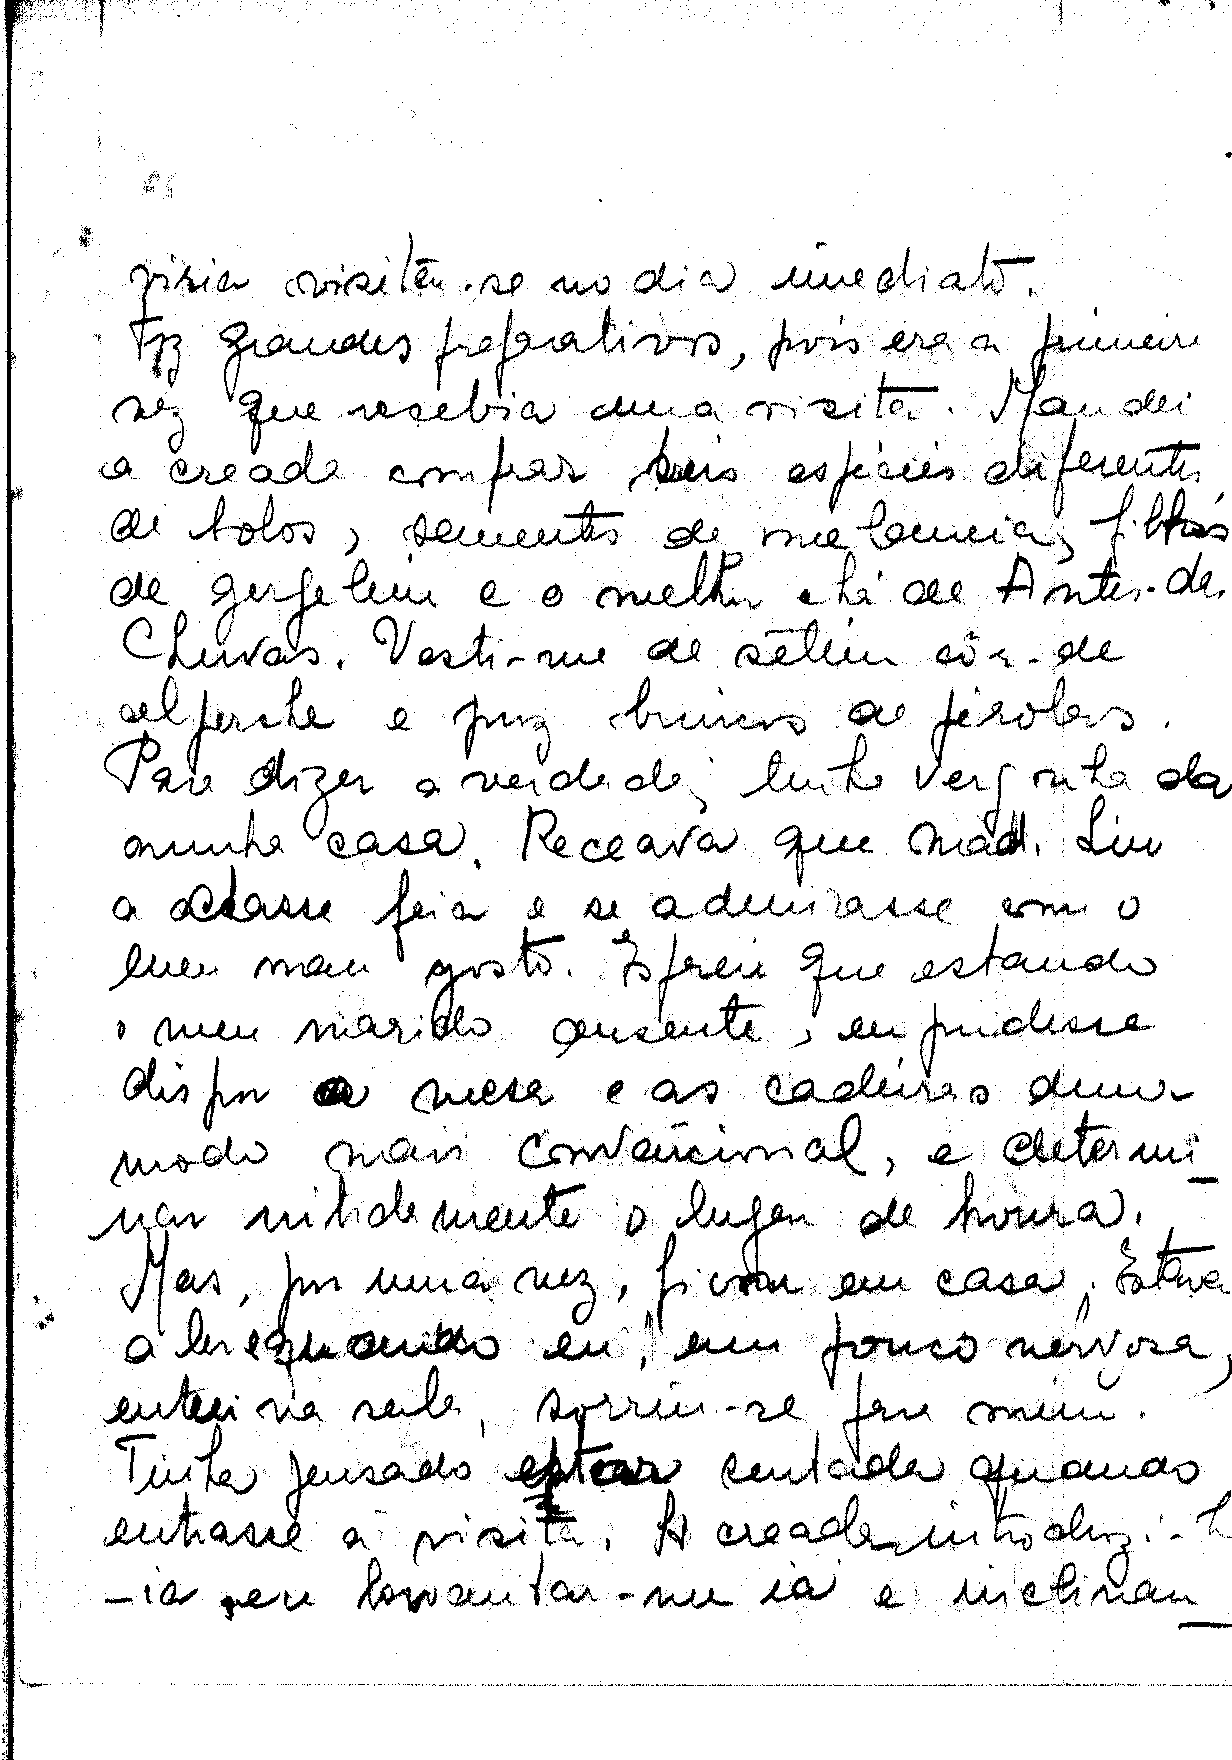 viria visitar-se no dia imediato.
Fiz grandes preparativos, pois era a primeira
vez que recebia uma visita. Mandei
a creada comprar seis espécies diferentes
de bolos, sementes de melancia, filhós
de gergelim e o melhor chá de Antes-das-
Chuvas. Vesti-me de setim côr-de
alperche e puz brincos de pérolas.
Para dizer a verdade, tinha vergonha da
minha casa. Receava que Mad. Liu
a achasse feia e se admirasse com o
meu mau gosto. Esperei que estando
o meu marido ausente, eu pudesse
dispor a mesa e as cadeiras dum
modo mais convencional, e determi-
nar nitidamente o lugar de honra.
Mas, por uma vez, ficou em casa. Estava
a ler e quando eu, um pouco nervosa,
entrei na sala, sorriu-se para mim.
Tinha pensado estar sentada quando
entrasse a visita. A creada introduzi-l
-ia, eu levantar-me ia e inclinan-